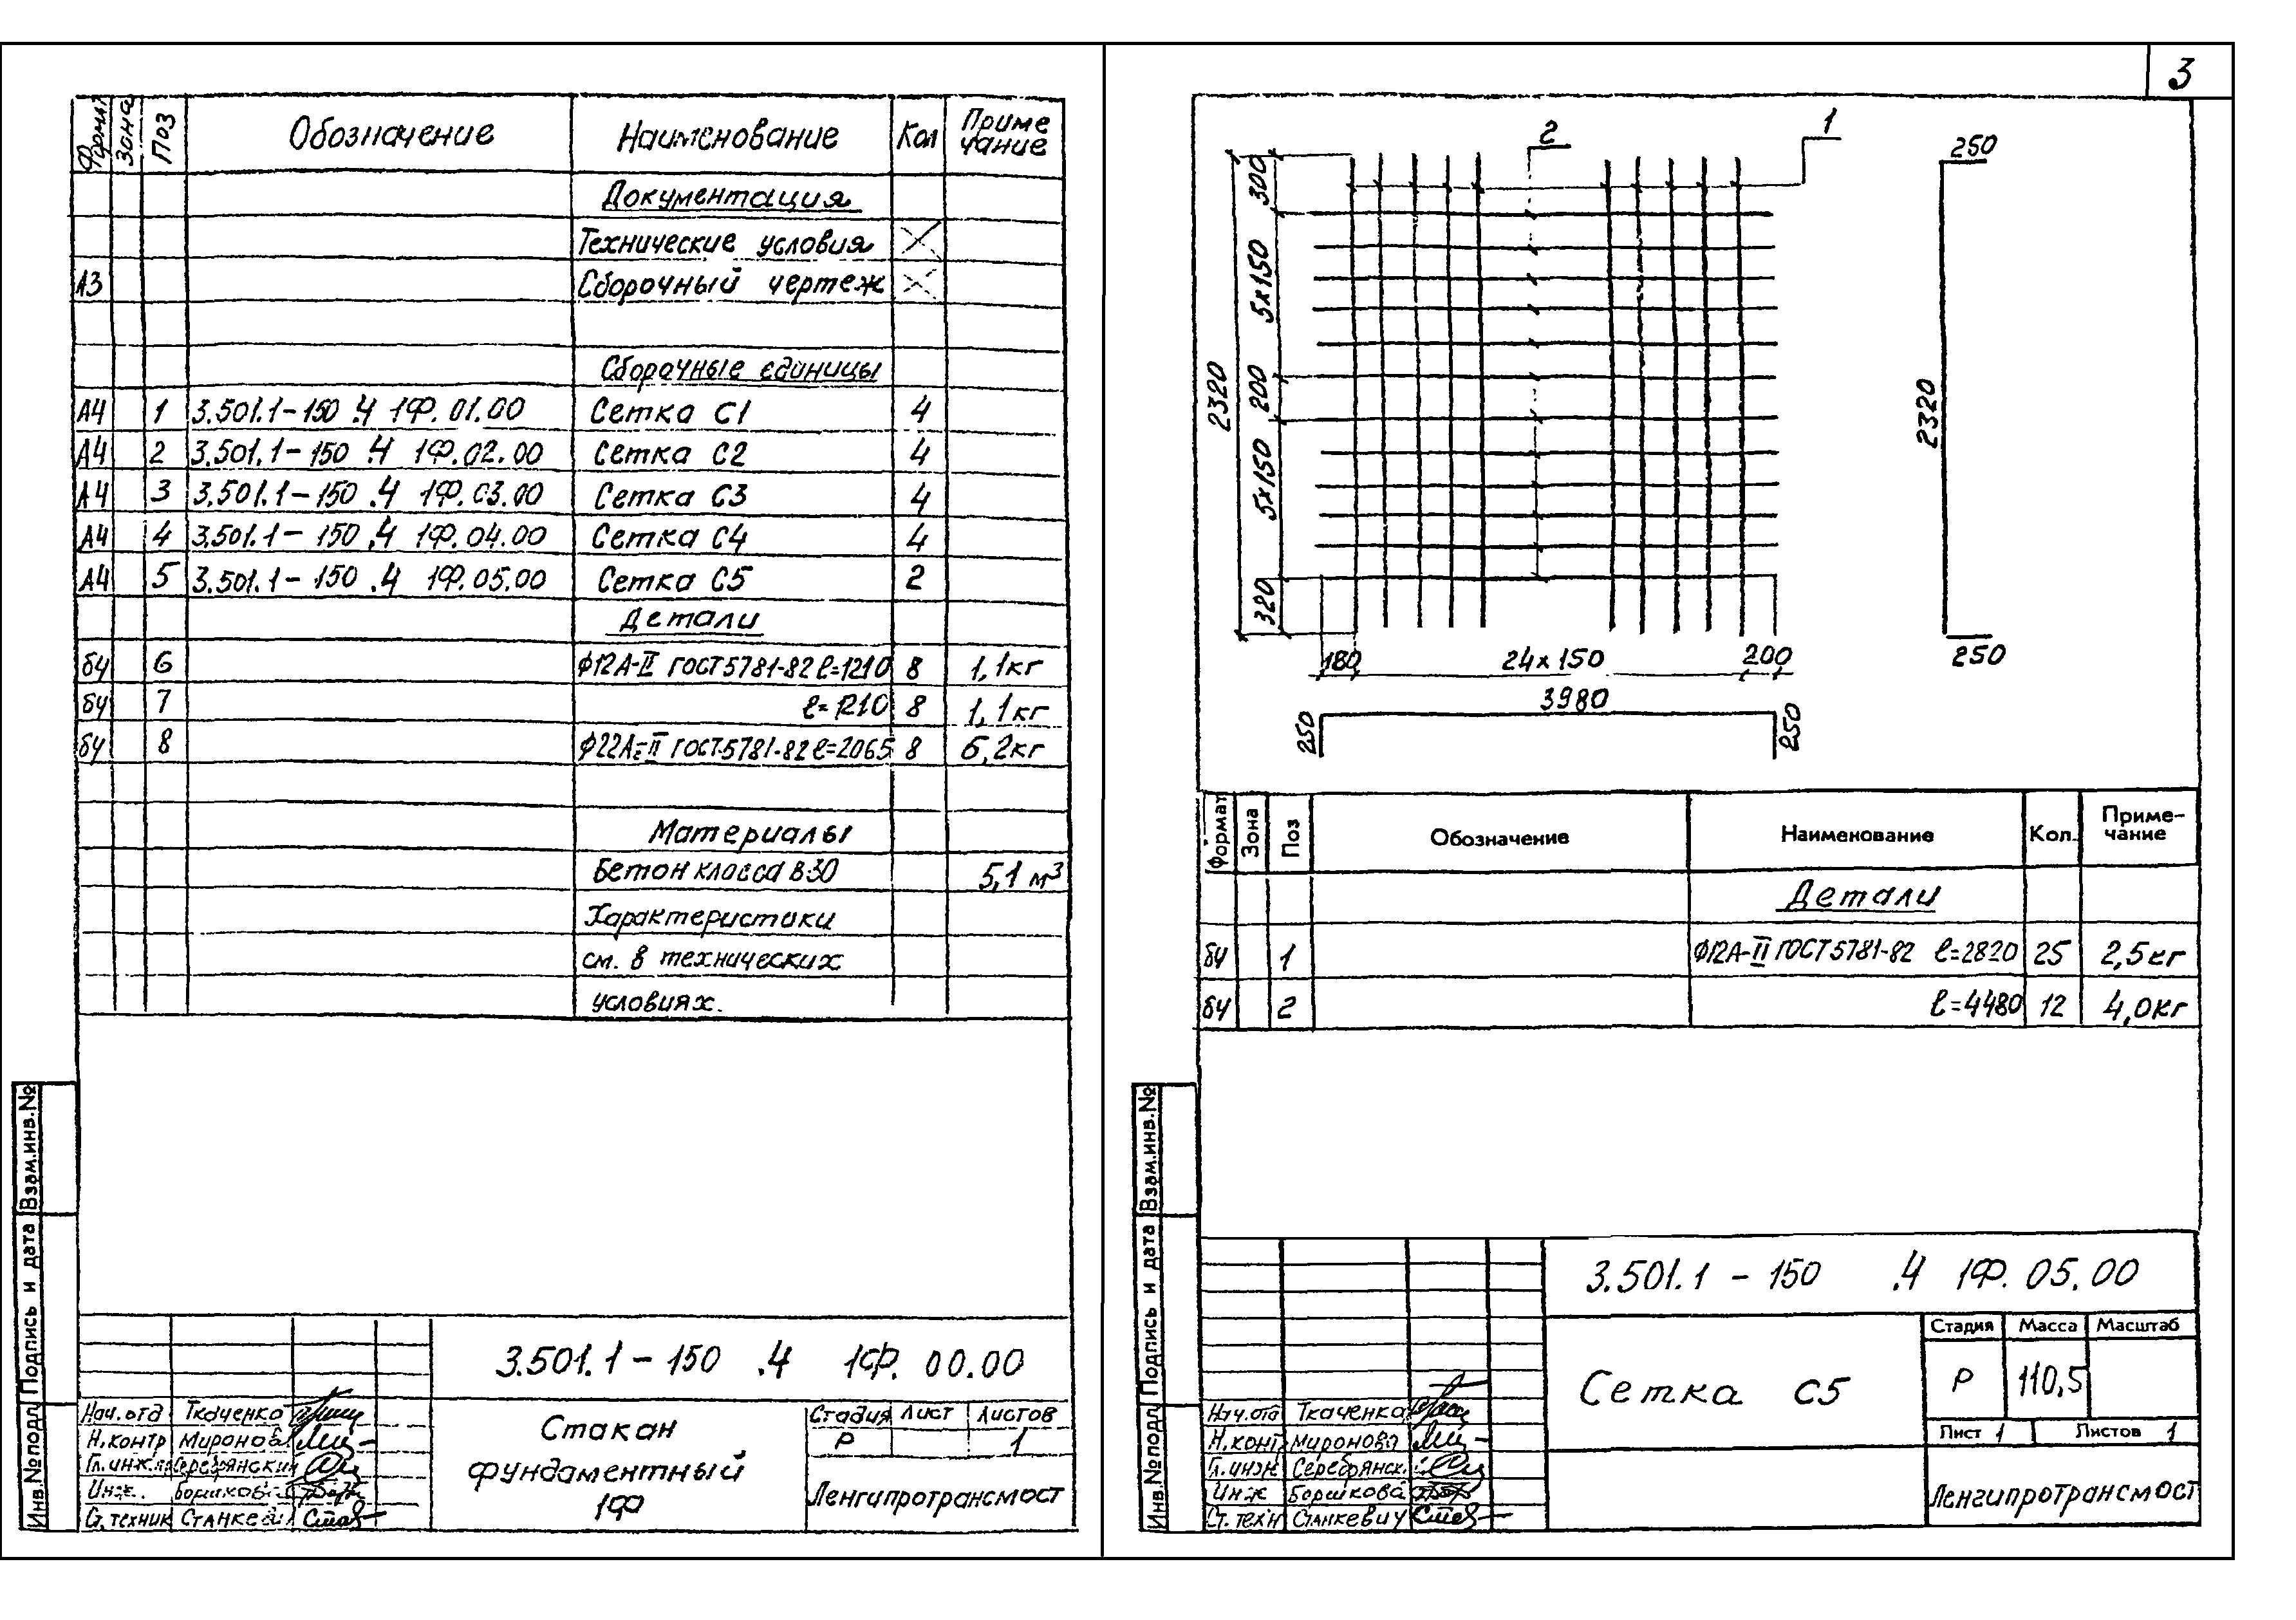 3
Формат Зона Поз Обозначение Наименование Кол Приме
чание
Документация
Технические условия
А3 Сборочный чертеж
Сборочные единицы
А4 1 3.501.1-150 .4 1Ф.01.00 Сетка С1 4
А4 2 3.501.1-150 .4 1Ф.02.00 Сетка С2 4
А4 3 3.501.1-150 .4 1Ф.03.00 Сетка С3 4
А4 4 3.501.1-150 .4 1Ф.04.00 Сетка С4 4
А4 5 3.501.1-150 .4 1Ф.05.00 Сетка С5 2
Детали
бч 6 Ф12А-II ГОСТ5781-82 ℓ=1210 8 1,1кг
бч 7 ℓ=1210 8 1,1кг
бч 8 Ф22А-II ГОСТ5781-82 ℓ=2065 8 6,2кг
Материалы
Бетон класса В30 5,1 м³
Характеристики
см. в технических
условиях.
Инв.№подл Подпись и дата Взам.инв.№
3.501.1-150 .4 1Ф. 00.00
Нач.отд Ткаченко
Н.контр Миронова
Гл.инж.пр Серебрянский
Инж..
Ст.техник Станкевич
Стакан
фундаментный
1Ф
Стадия Лист Листов
Р 1
Ленгипротрансмост
2 1
300 5х150 200 5х150 320
2320
180 24х150 200
3980
250 250
250
2320
250
Формат Зона Поз Обозначение Наименование Кол. Приме-
чание
Детали
бч 1 Ф12А-II ГОСТ5781-82 ℓ=2820 25 2,5кг
бч 2 ℓ=4480 12 4,0кг
Инв.№подл Подпись и дата Взам.инв.№
3.501.1-150 .4 1Ф. 05.00
Нач.отд Ткаченко
Н.контр Миронова
Гл.инж Серебрянск.
Инж Боршкова
Ст.техн Станкевич
Сетка С5
Стадия Масса Масштаб
Р 110,5
Лист 1 Листов 1
Ленгипротрансмост